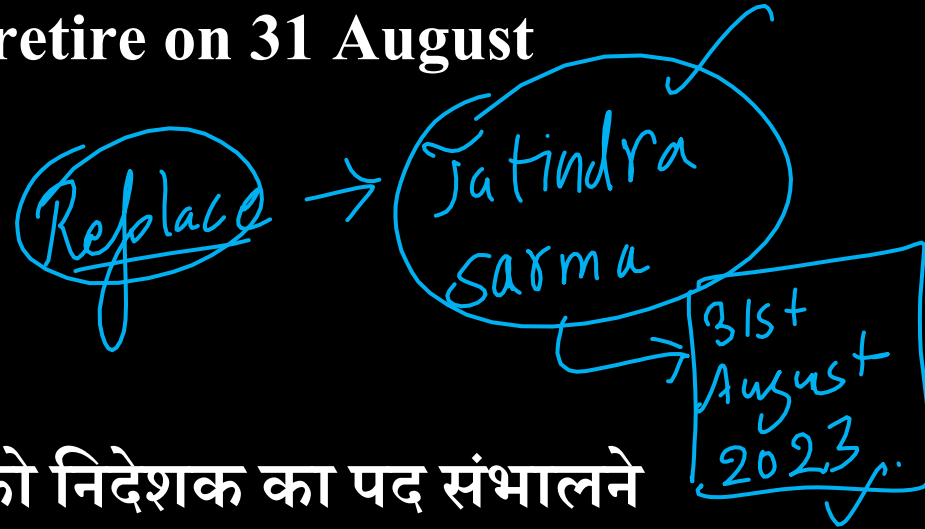 retire on 31 August
Replace → Jatindra
Sarma
31st
August
2023
को निदेशक का पद संभालने